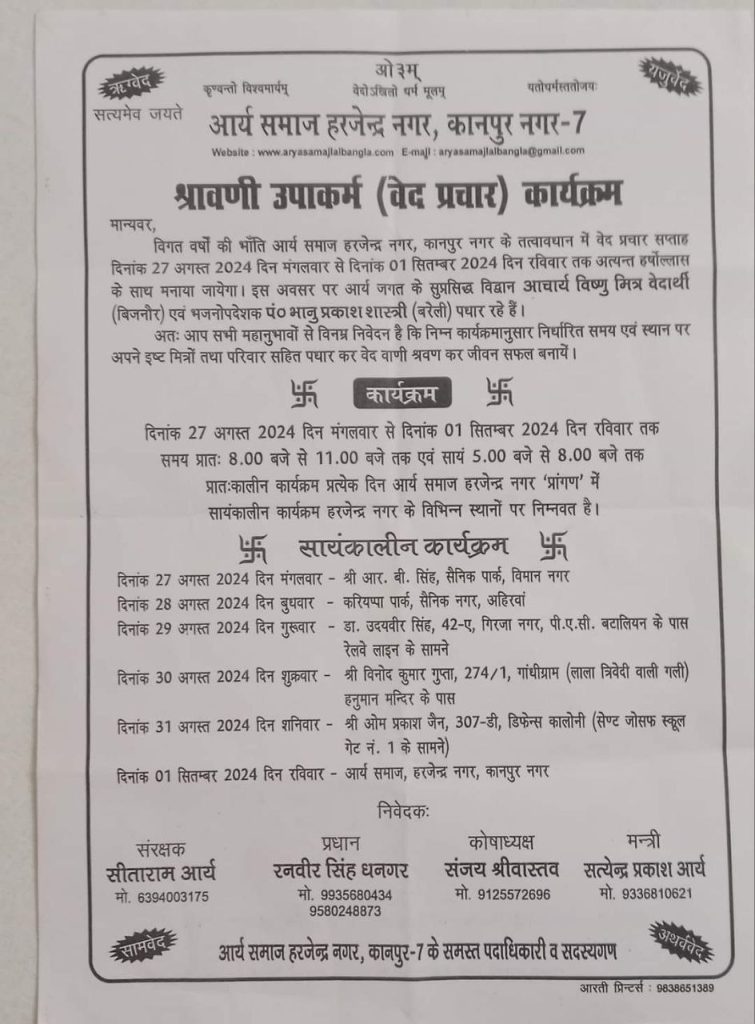 ओ३म्
ऋग्वेद
यजुर्वेद
कृण्वन्तो विश्वमार्यम् वेदोऽखिलो धर्म मूलम् यतोधर्मस्ततोजयः
सत्यमेव जयते
आर्य समाज हरजेन्द्र नगर, कानपुर नगर-7
Website : www.aryasamajlalbangla.com E-majl : aryasamajlalbangla@gmail.com
श्रावणी उपाकर्म (वेद प्रचार) कार्यक्रम
मान्यवर,
विगत वर्षों की भाँति आर्य समाज हरजेन्द्र नगर, कानपुर नगर के तत्वावधान में वेद प्रचार सप्ताह
दिनांक 27 अगस्त 2024 दिन मंगलवार से दिनांक 01 सितम्बर 2024 दिन रविवार तक अत्यन्त हर्षोल्लास
के साथ मनाया जायेगा। इस अवसर पर आर्य जगत के सुप्रसिद्ध विद्वान आचार्य विष्णु मित्र वेदार्थी
(बिजनौर) एवं भजनोपदेशक पं० भानु प्रकाश शास्त्री (बरेली) पधार रहे हैं।
अतः आप सभी महानुभावों से विनम्र निवेदन है कि निम्न कार्यक्रमानुसार निर्धारित समय एवं स्थान पर
अपने इष्ट मित्रों तथा परिवार सहित पधार कर वेद वाणी श्रवण कर जीवन सफल बनायें।
卐 कार्यक्रम 卐
दिनांक 27 अगस्त 2024 दिन मंगलवार से दिनांक 01 सितम्बर 2024 दिन रविवार तक
समय प्रातः 8.00 बजे से 11.00 बजे तक एवं सायं 5.00 बजे से 8.00 बजे तक
प्रातःकालीन कार्यक्रम प्रत्येक दिन आर्य समाज हरजेन्द्र नगर 'प्रांगण' में
सायंकालीन कार्यक्रम हरजेन्द्र नगर के विभिन्न स्थानों पर निम्नवत है।
卐 सायंकालीन कार्यक्रम 卐
दिनांक 27 अगस्त 2024 दिन मंगलवार - श्री आर. बी. सिंह, सैनिक पार्क, विमान नगर
दिनांक 28 अगस्त 2024 दिन बुधवार - करियप्पा पार्क, सैनिक नगर, अहिरवां
दिनांक 29 अगस्त 2024 दिन गुरूवार - डा. उदयवीर सिंह, 42-ए, गिरजा नगर, पी.ए.सी. बटालियन के पास
रेलवे लाइन के सामने
दिनांक 30 अगस्त 2024 दिन शुक्रवार - श्री विनोद कुमार गुप्ता, 274/1, गांधीग्राम (लाला त्रिवेदी वाली गली)
हनुमान मन्दिर के पास
दिनांक 31 अगस्त 2024 दिन शनिवार - श्री ओम प्रकाश जैन, 307-डी, डिफेन्स कालोनी (सेण्ट जोसफ स्कूल
गेट नं. 1 के सामने)
दिनांक 01 सितम्बर 2024 दिन रविवार - आर्य समाज, हरजेन्द्र नगर, कानपुर नगर
निवेदकः
संरक्षक
सीताराम आर्य
मो. 6394003175
प्रधान
रनवीर सिंह धनगर
मो. 9935680434
9580248873
कोषाध्यक्ष
संजय श्रीवास्तव
मो. 9125572696
मन्त्री
सत्येन्द्र प्रकाश आर्य
मो. 9336810621
सामवेद
आर्य समाज हरजेन्द्र नगर, कानपुर-7 के समस्त पदाधिकारी व सदस्यगण
अथर्ववेद
आरती प्रिन्टर्स : 9838651389